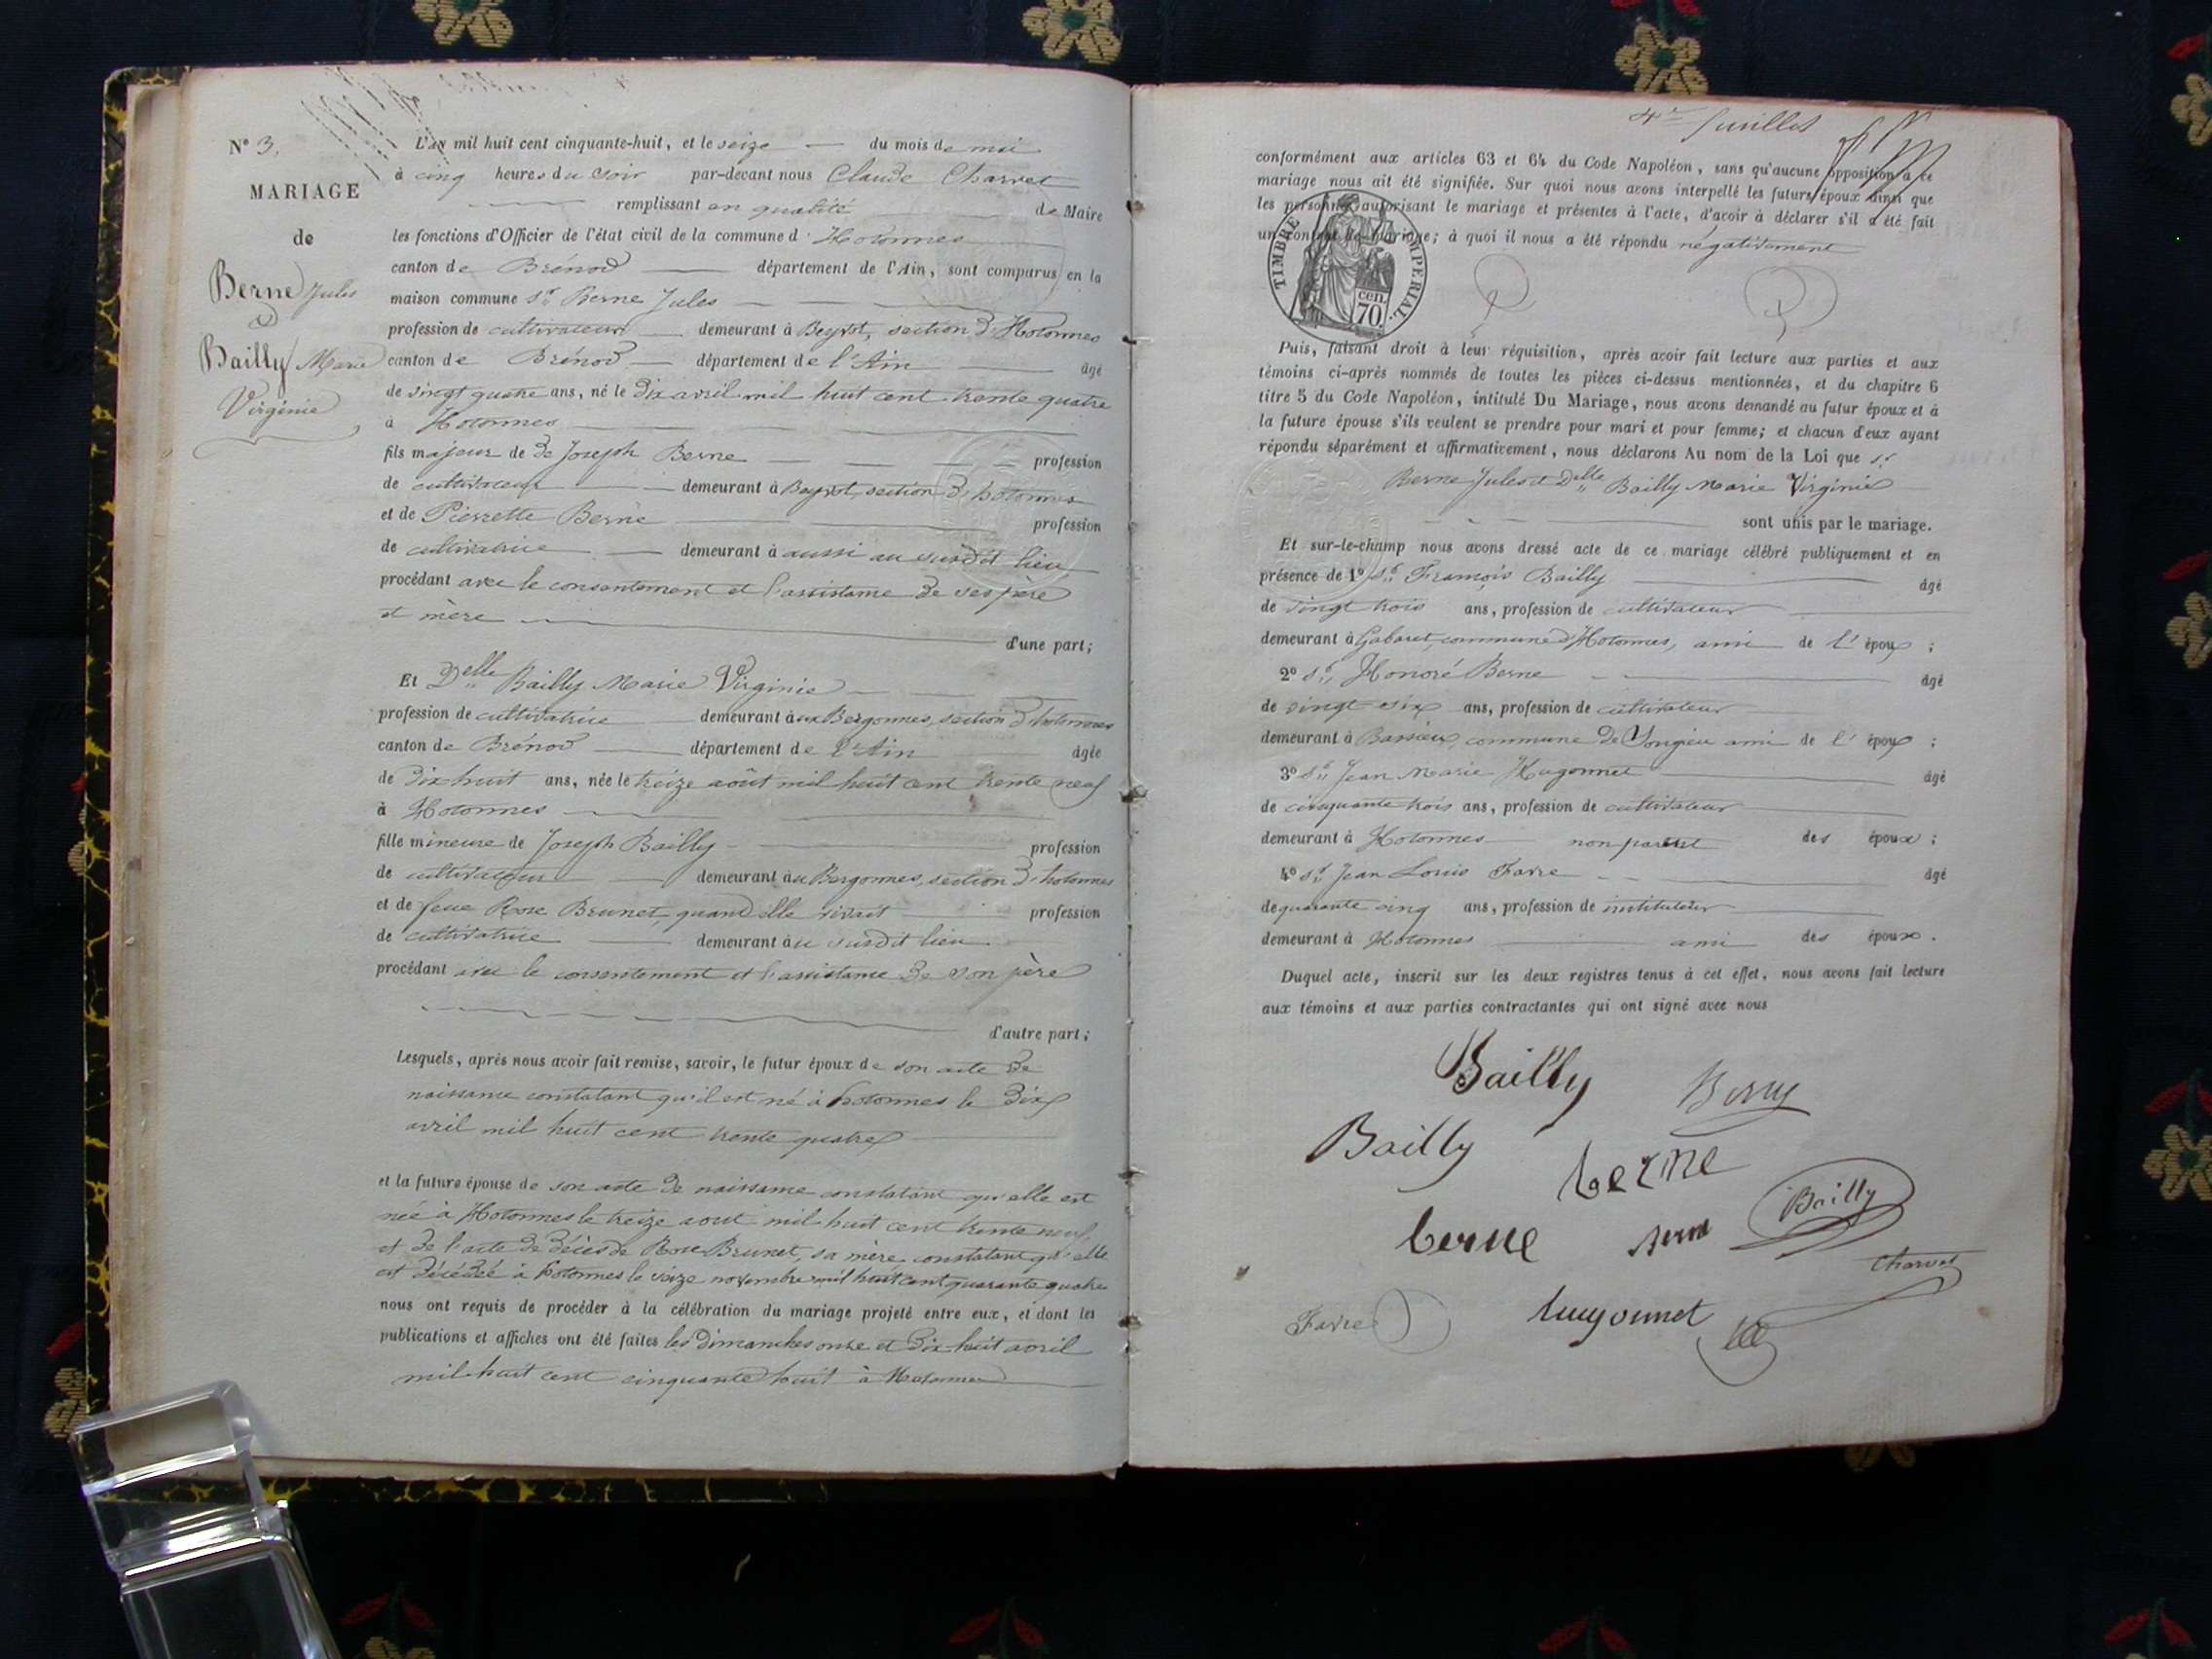 N° 3.
MARIAGE
de
Berne Jules
&
Bailly Marie
Virginie
L'an mil huit cent cinquante-huit, et le seize du mois de mai
à cinq heures du soir par-devant nous Claude Charvet
remplissant en qualité de Maire
les fonctions d'Officier de l'état civil de la commune d'Hotonnes
canton de Brénod département de l'Ain, sont comparus en la
maison commune Sr. Berne Jules
profession de cultivateur demeurant à Beyrot, section d'Hotonnes
canton de Brénod département de l'Ain âgé
de vingt quatre ans, né le dix avril mil huit cent trente quatre
à Hotonnes
fils majeur de de Joseph Berne profession
de cultivateur demeurant à Beyrot, section d'hotonnes
et de Pierrette Berne profession
de cultivatrice demeurant à aussi au susdit lieu
procédant avec le consentement et l'assistance de ses père
et mère
d'une part;
Et Delle Bailly Marie Virginie
profession de cultivatrice demeurant aux Bergonnes, section d'hotonnes
canton de Brénod département de l'Ain âgée
de dix huit ans, née le treize août mil huit cent trente neuf
à Hotonnes
fille mineure de Joseph Bailly profession
de cultivateur demeurant au Bergonnes, section d'hotonnes
et de feue Rose Brunet, quand elle vivait profession
de cultivatrice demeurant au susdit lieu
procédant avec le consentement et l'assistance de son père
d'autre part;
Lesquels, après nous avoir fait remise, savoir, le futur époux de son acte de
naissance constatant qu'il est né à hotonnes le dix
avril mil huit cent trente quatre
et la future épouse de son acte de naissance constatant qu'elle est
née à Hotonnes le treize aout mil huit cent trente neuf,
et de l'acte de décès de Rose Brunet, sa mère constatant qu'elle
est décédée à hotonnes le seize novembre mil huit cent quarante quatre
nous ont requis de procéder à la célébration du mariage projeté entre eux, et dont les
publications et affiches ont été faites les dimanches onze et dix huit avril
mil huit cent cinquante huit à Hotonnes
conformément aux articles 63 et 64 du Code Napoléon, sans qu'aucune opposition à ce
mariage nous ait été signifiée. Sur quoi nous avons interpellé les futurs époux ainsi que
les personnes autorisant le mariage et présentes à l'acte, d'avoir à déclarer s'il a été fait
un contrat de mariage; à quoi il nous a été répondu négativement
TIMBRE IMPERIAL.
cen.
70.
Puis, faisant droit à leur réquisition, après avoir fait lecture aux parties et aux
témoins ci-après nommés de toutes les pièces ci-dessus mentionnées, et du chapitre 6
titre 5 du Code Napoléon, intitulé Du Mariage, nous avons demandé au futur époux et à
la future épouse s'ils veulent se prendre pour mari et pour femme; et chacun d'eux ayant
répondu séparément et affirmativement, nous déclarons Au nom de la Loi que Sr.
Berne Jules et Delle Bailly Marie Virginie
sont unis par le mariage.
Et sur-le-champ nous avons dressé acte de ce mariage célébré publiquement et en
présence de 1° Sr. François Bailly âgé
de vingt trois ans, profession de cultivateur
demeurant à Gabaret, commune d'Hotonnes, ami de l'époux ;
2° Sr. Honoré Berne âgé
de vingt six ans, profession de cultivateur
demeurant à Bassieu, commune de Songieu ami de l'époux ;
3° Sr. Jean Marie Hugonnet âgé
de cinquante trois ans, profession de cultivateur
demeurant à Hotonnes non parent des époux ;
4° Sr. Jean Louis Favre âgé
de quarante cinq ans, profession de instituteur
demeurant à Hotonnes ami des époux.
Duquel acte, inscrit sur les deux registres tenus à cet effet, nous avons fait lecture
aux témoins et aux parties contractantes qui ont signé avec nous
Bailly
Bailly
berne
berne
Bailly
Charvet
Favre
hugonnet